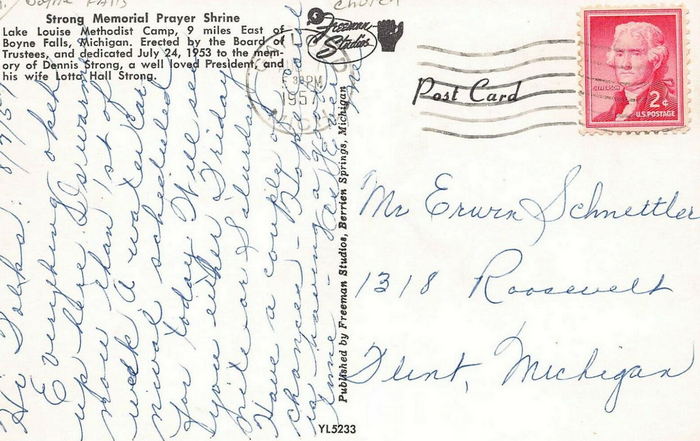 Boyne Falls
Church
Strong Memorial Prayer Shrine
Lake Louise Methodist Camp, 9 miles East of
Boyne Falls, Michigan. Erected by the Board of
Trustees, and dedicated July 24, 1953 to the mem-
ory of Dennis Strong, a well loved President, and
his wife Lotta Hall Strong.
Freeman
Studios
PM
1957
Post Card
JEFFERSON
2¢
U.S. POSTAGE
Hi Folks:
Everything okeh
up here
now than 1st of
week. A water car-
nival scheduled
for today. Will see
you either Friday
nite or Saturday.
Have a couple of
chances - Hope
is having a
time -
Published by Freeman Studios, Berrien Springs, Michigan
Mr Erwin Schnettler
1318 Roosevelt
Flint, Michigan
YL5233